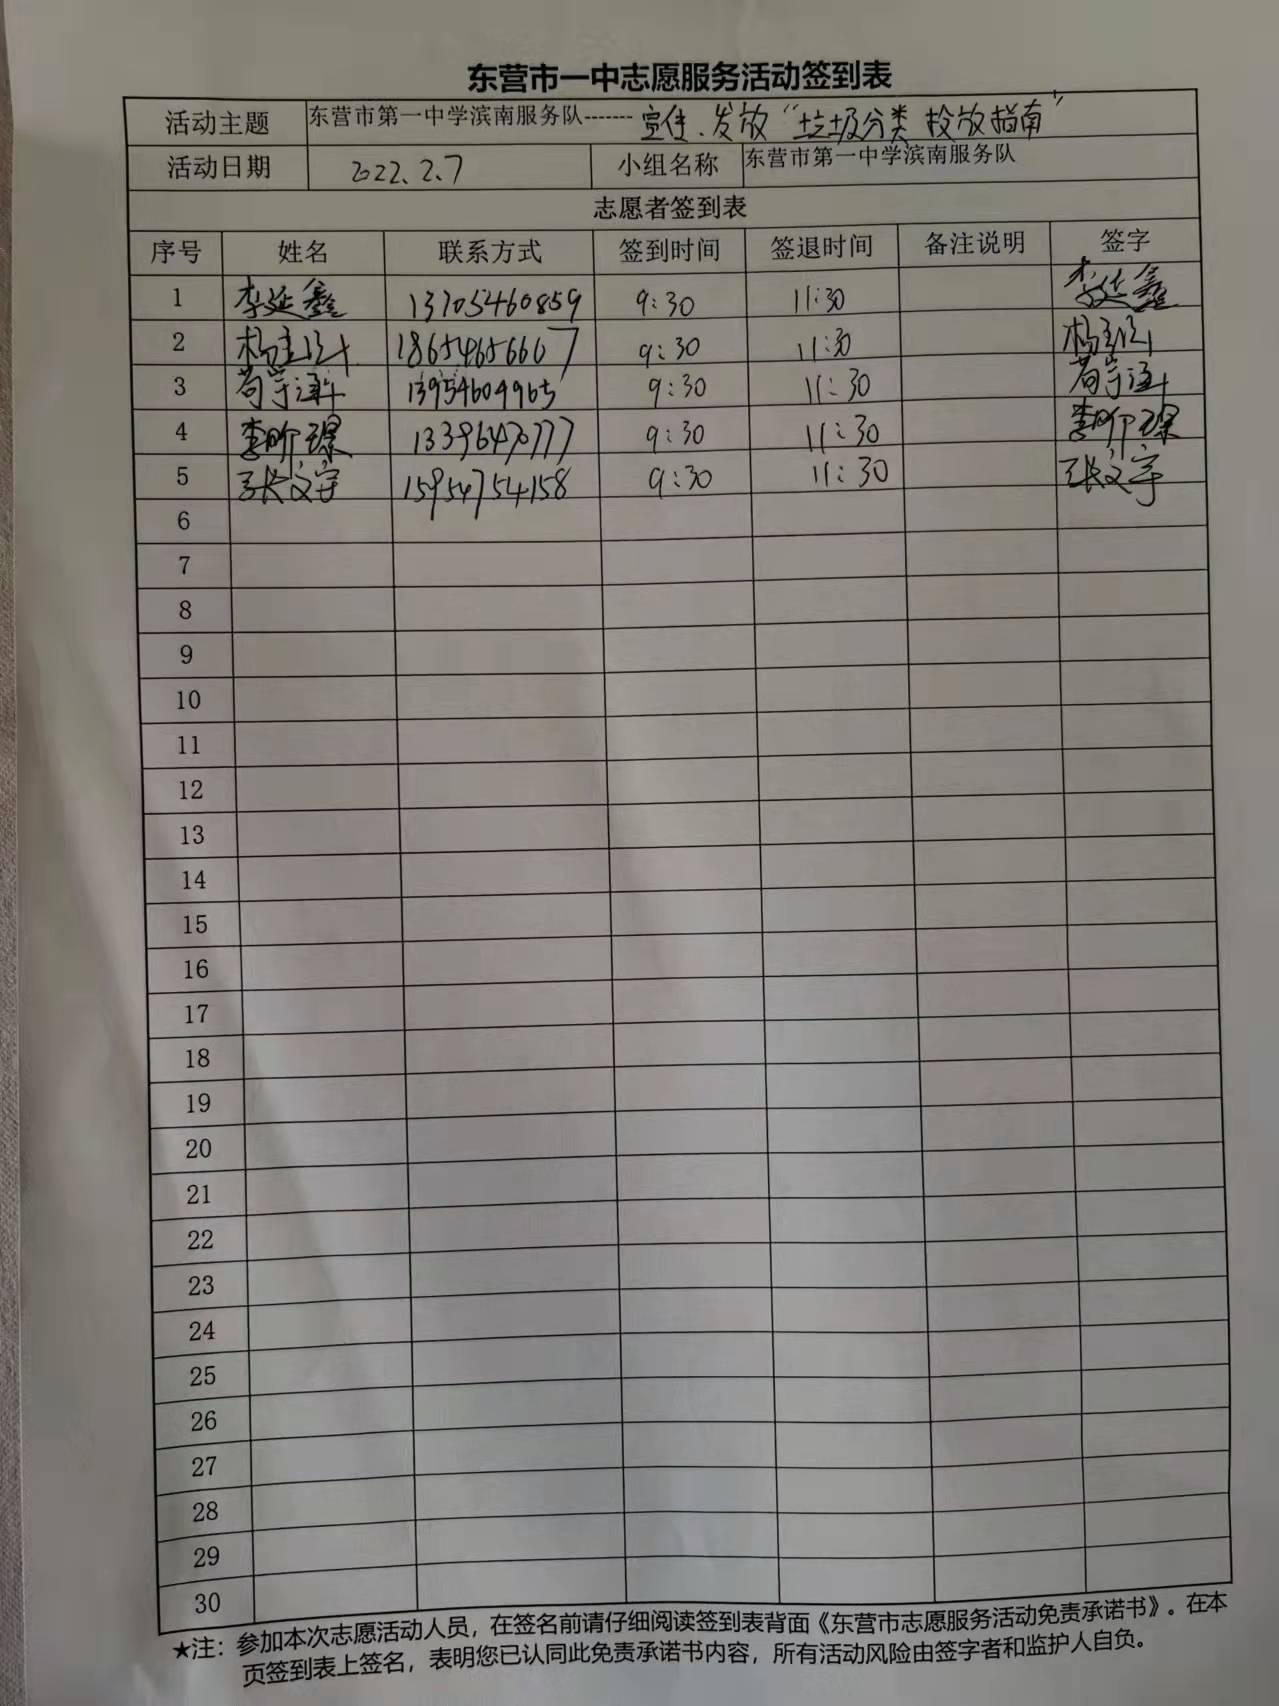 东营市一中志愿服务活动签到表
活动主题 东营市第一中学滨南服务队------- 宣传、发放“垃圾分类投放指南”
活动日期 2022.2.7 小组名称 东营市第一中学滨南服务队
志愿者签到表
序号 姓名 联系方式 签到时间 签退时间 备注说明 签字
1 李延鑫 13705460859 9:30 11:30 李延鑫
2 18654656667 9:30 11:30
3 13954604965 9:30 11:30
4 13396470777 9:30 11:30
5 张文宇 15954754158 9:30 11:30 张文宇
6
7
8
9
10
11
12
13
14
15
16
17
18
19
20
21
22
23
24
25
26
27
28
29
30
★注：参加本次志愿活动人员，在签名前请仔细阅读签到表背面《东营市志愿服务活动免责承诺书》。在本
页签到表上签名，表明您已认同此免责承诺书内容，所有活动风险由签字者和监护人自负。